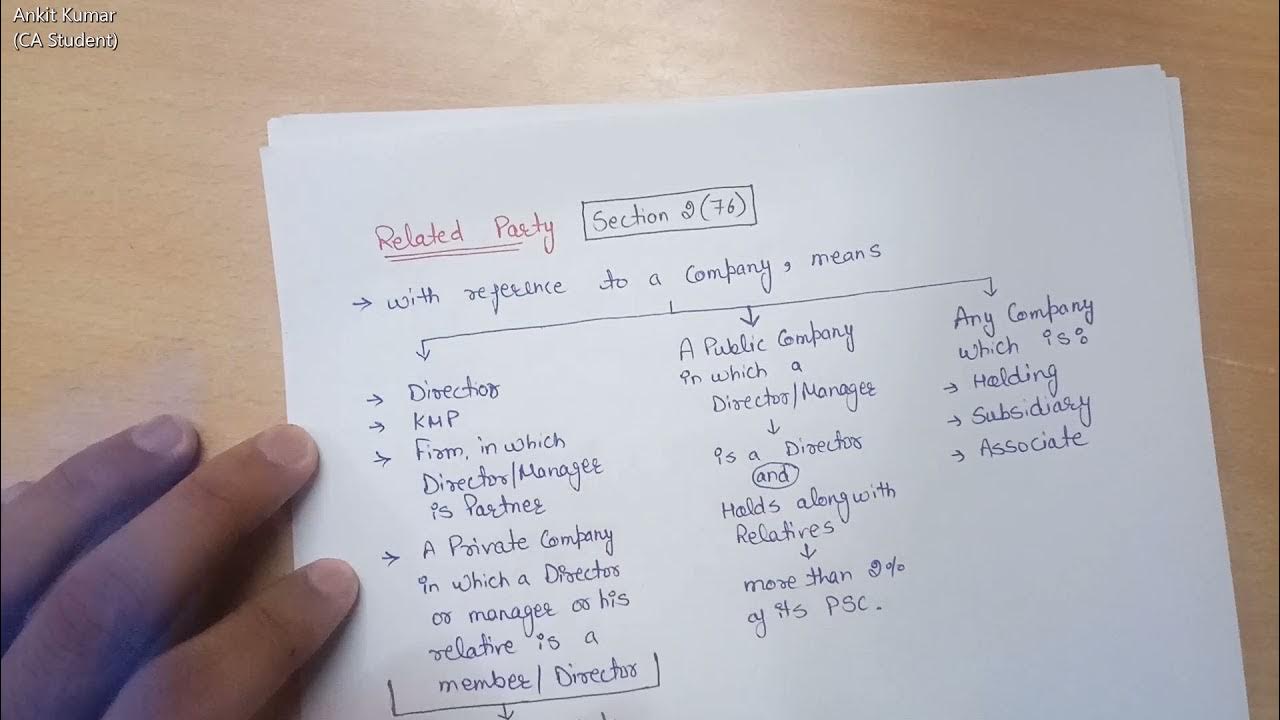 Ankit Kumar
(CA Student)
Related Party Section 2(76)
→ with reference to a Company, means
→ Director
→ KMP
→ Firm, in which
Director/Manager
is Partner
→ A Private Company
in which a Director
or manager or his
relative is a
member/Director
A Public Company
in which a
Director/Manager
↓
is a Director
and
Holds alongwith
Relatives
↓
more than 2%
of its PSC.
Any Company
which is:
→ Holding
→ Subsidiary
→ Associate